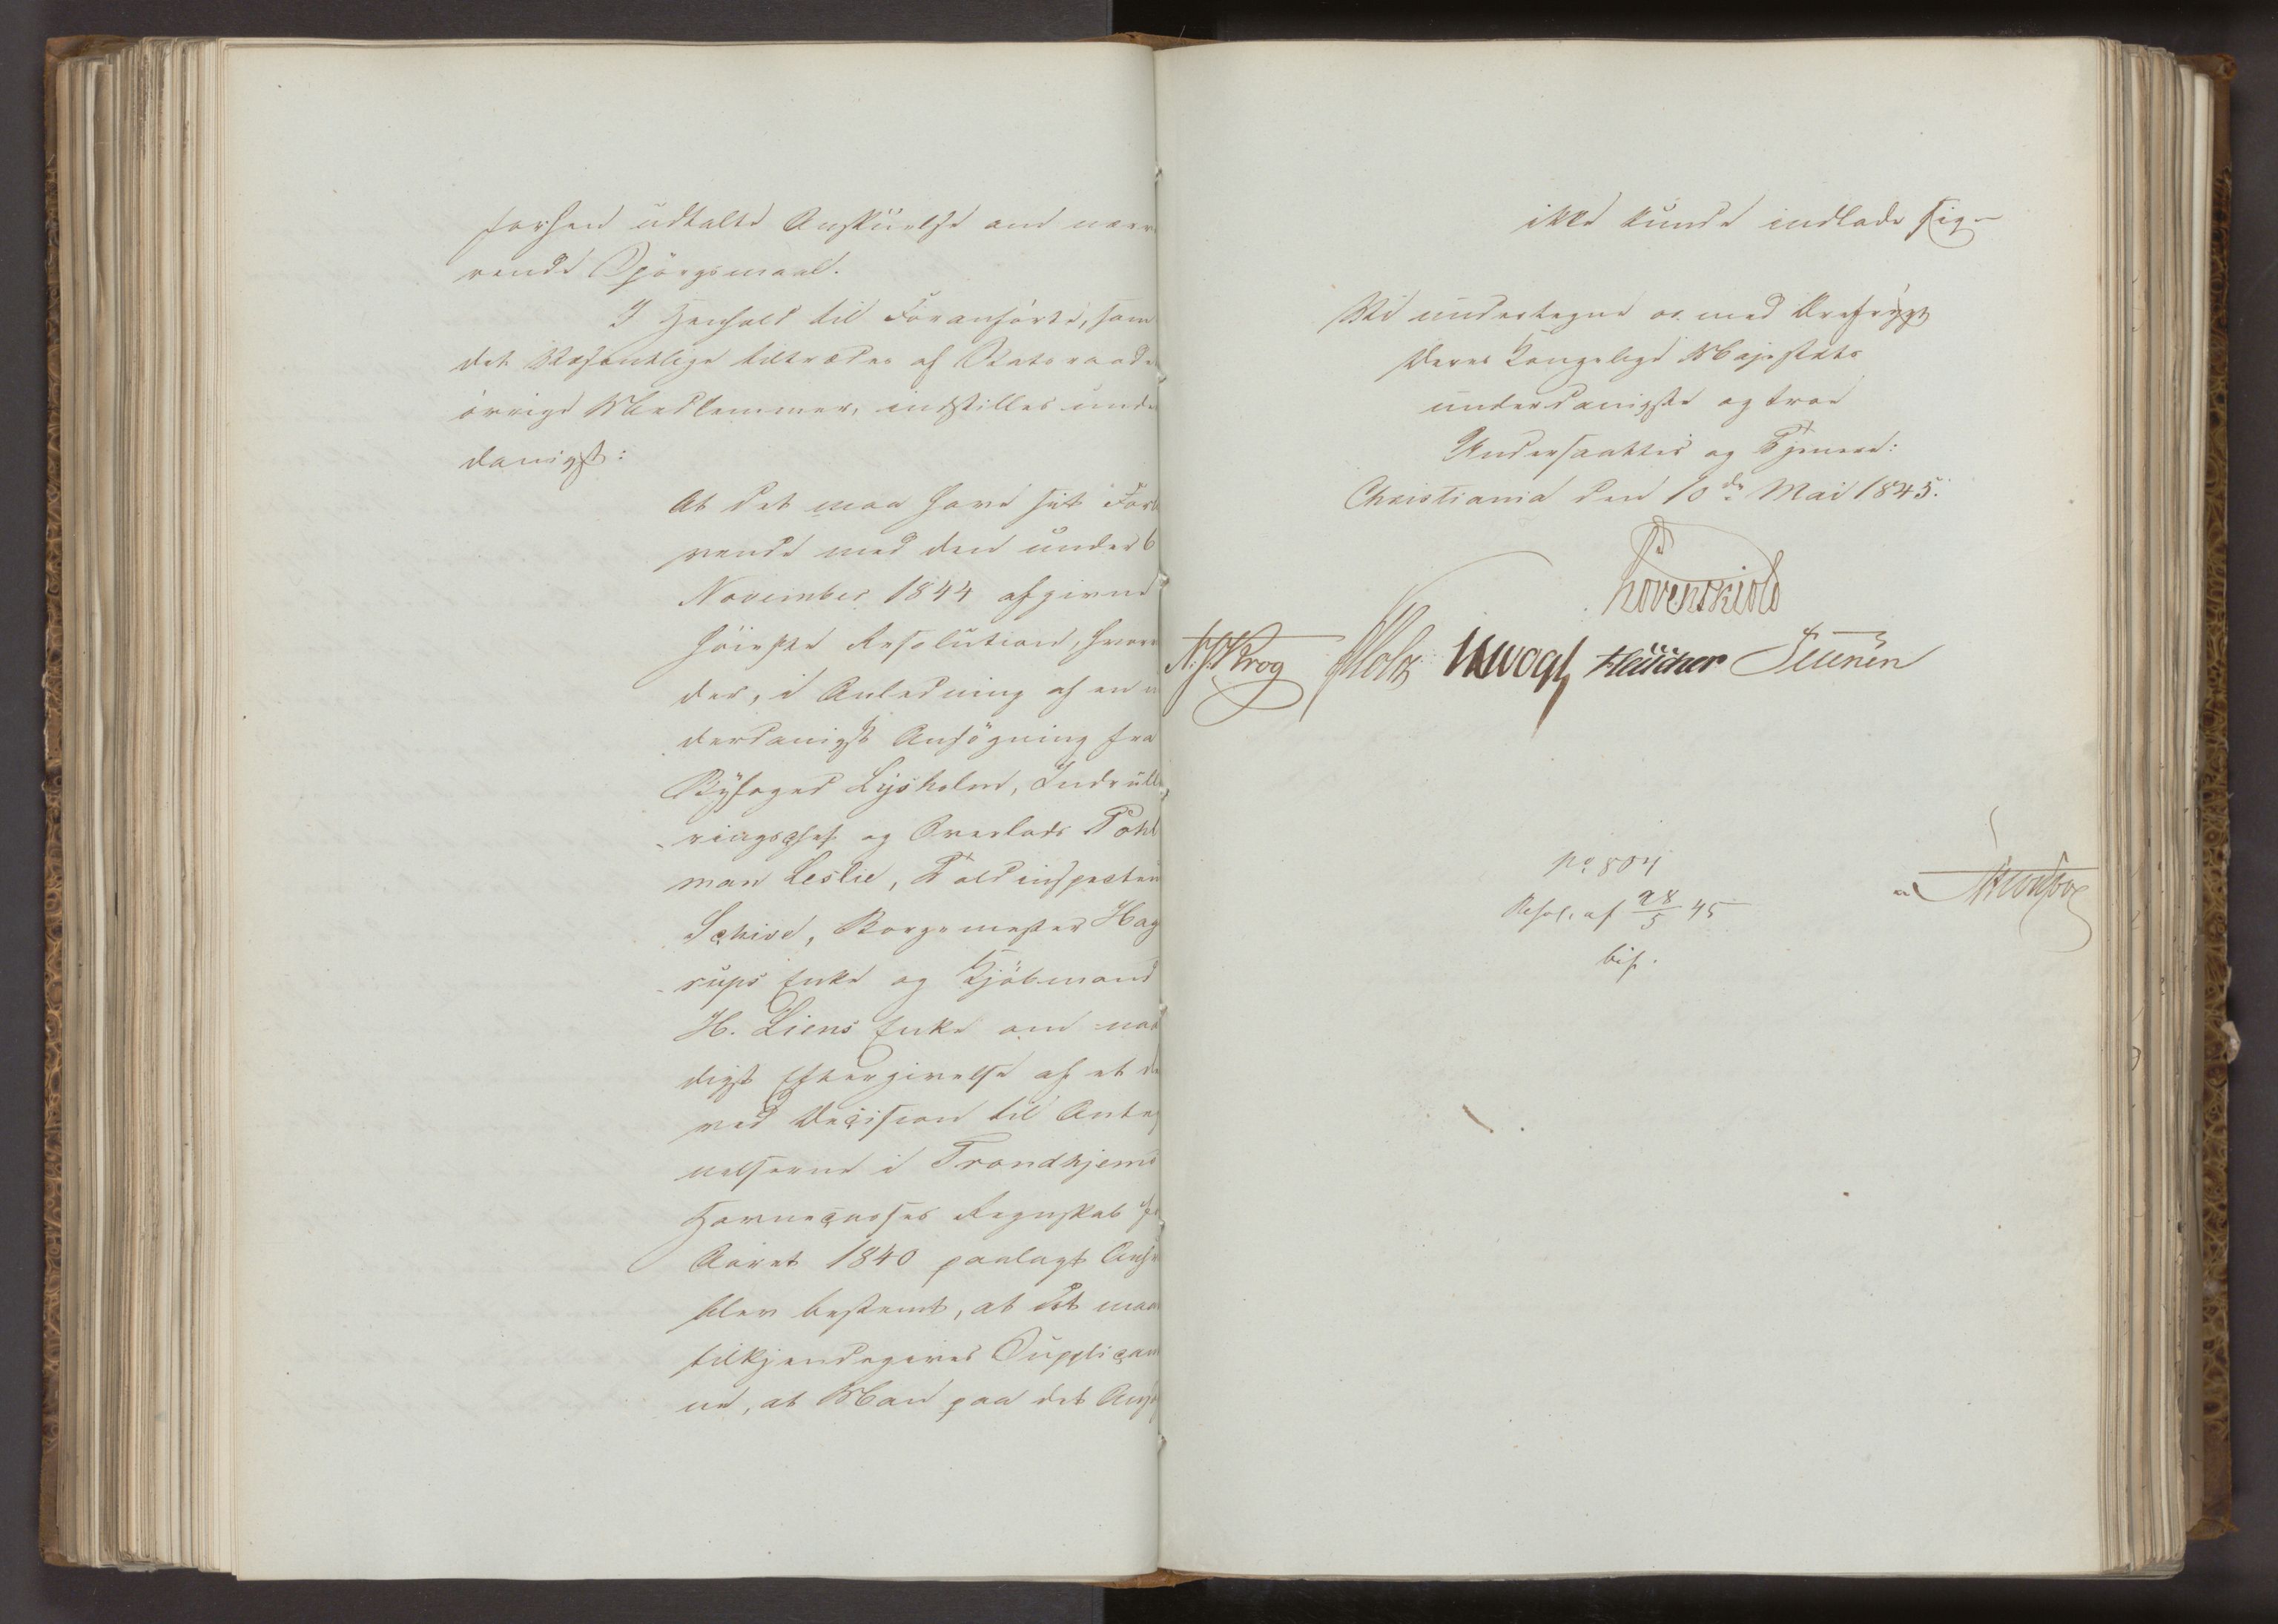 forhen udtalte Anskuelse om nærvæ
rende Spörgsmaal.
I Henhold til Foranförte, som
det Væsentlige tiltrædes af Statsraadets
övrige Medlemmer, indstilles under
danigst:
At det maa have sit Forbli
vende med den under 6
November 1844 afgivne
höieste Resolution, hvorve
der, i Anledning af en un
derdanigst Ansögning fra
Byfoged Lysholm, Indrulle
ringschef og Overlods Pohl
man Leslie, Toldinspecteur
Schive, Borgemester Hag
rups Enke og Kjöbmand
H. Liens Enke om naa
digst Eftergivelse af et dem
ved Decision til Anteg
nelserne i Trondhjems
Havnecasses Regnskab for
Aaret 1840 paalagt Ansvar
blev bestemt, at det maa
tilkjendegives Supplican
ne, at Man paa det Ansög
ikke kunde indlade sig.
Vi undertegne os med Ærefrygt
Deres Kongelige Majestæts
underdanigste og troe
Undersaatter og Tjenere:
Christiania den 10de Mai 1845.
Lövenskiold
N. J. Krog Holst Vogt
No 504
Resol. af 28/5 45
bif.